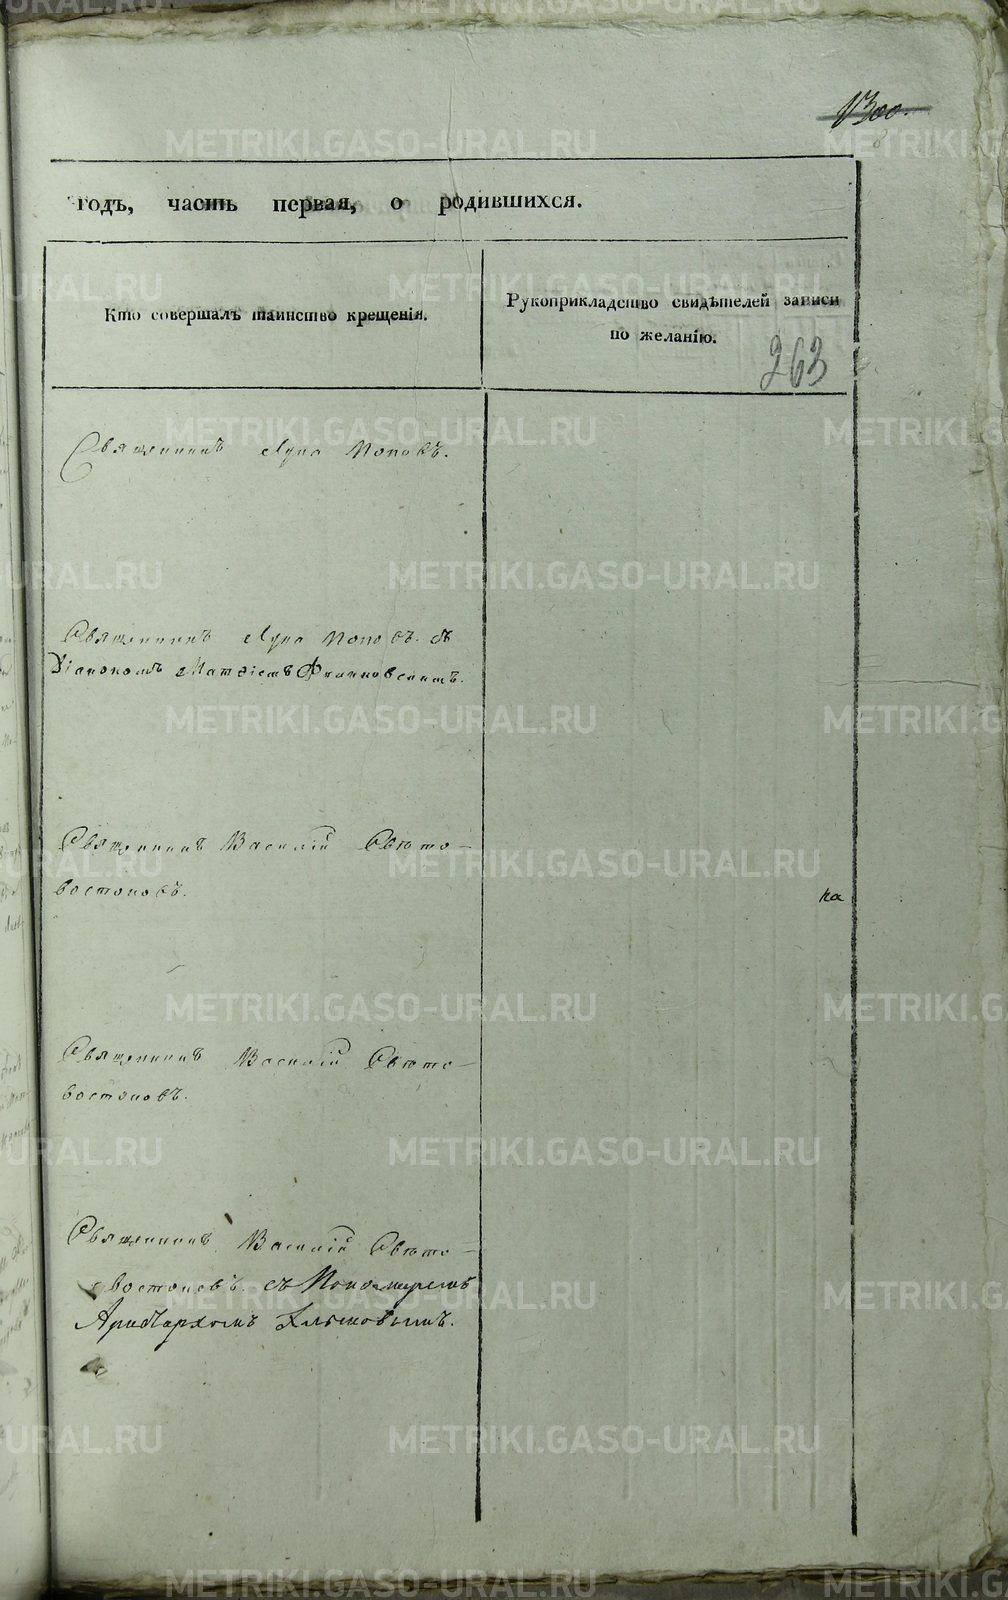 1300.
годъ, часть первая, о родившихся.
Кто совершалъ таинство крещенія.
Рукоприкладство свидѣтелей записи
по желанію.
263
Священникъ Лука Поповъ.
Священникъ Лука Поповъ. съ
Діакономъ Матѳіемъ
Священникъ Василій Свѣто-
востоковъ.
ка
Священникъ Василій Свѣто-
востоковъ.
Священникъ Василій Свѣто-
востоковъ. съ Пономаремъ
Аристархомъ
METRIKI.GASO-URAL.RU